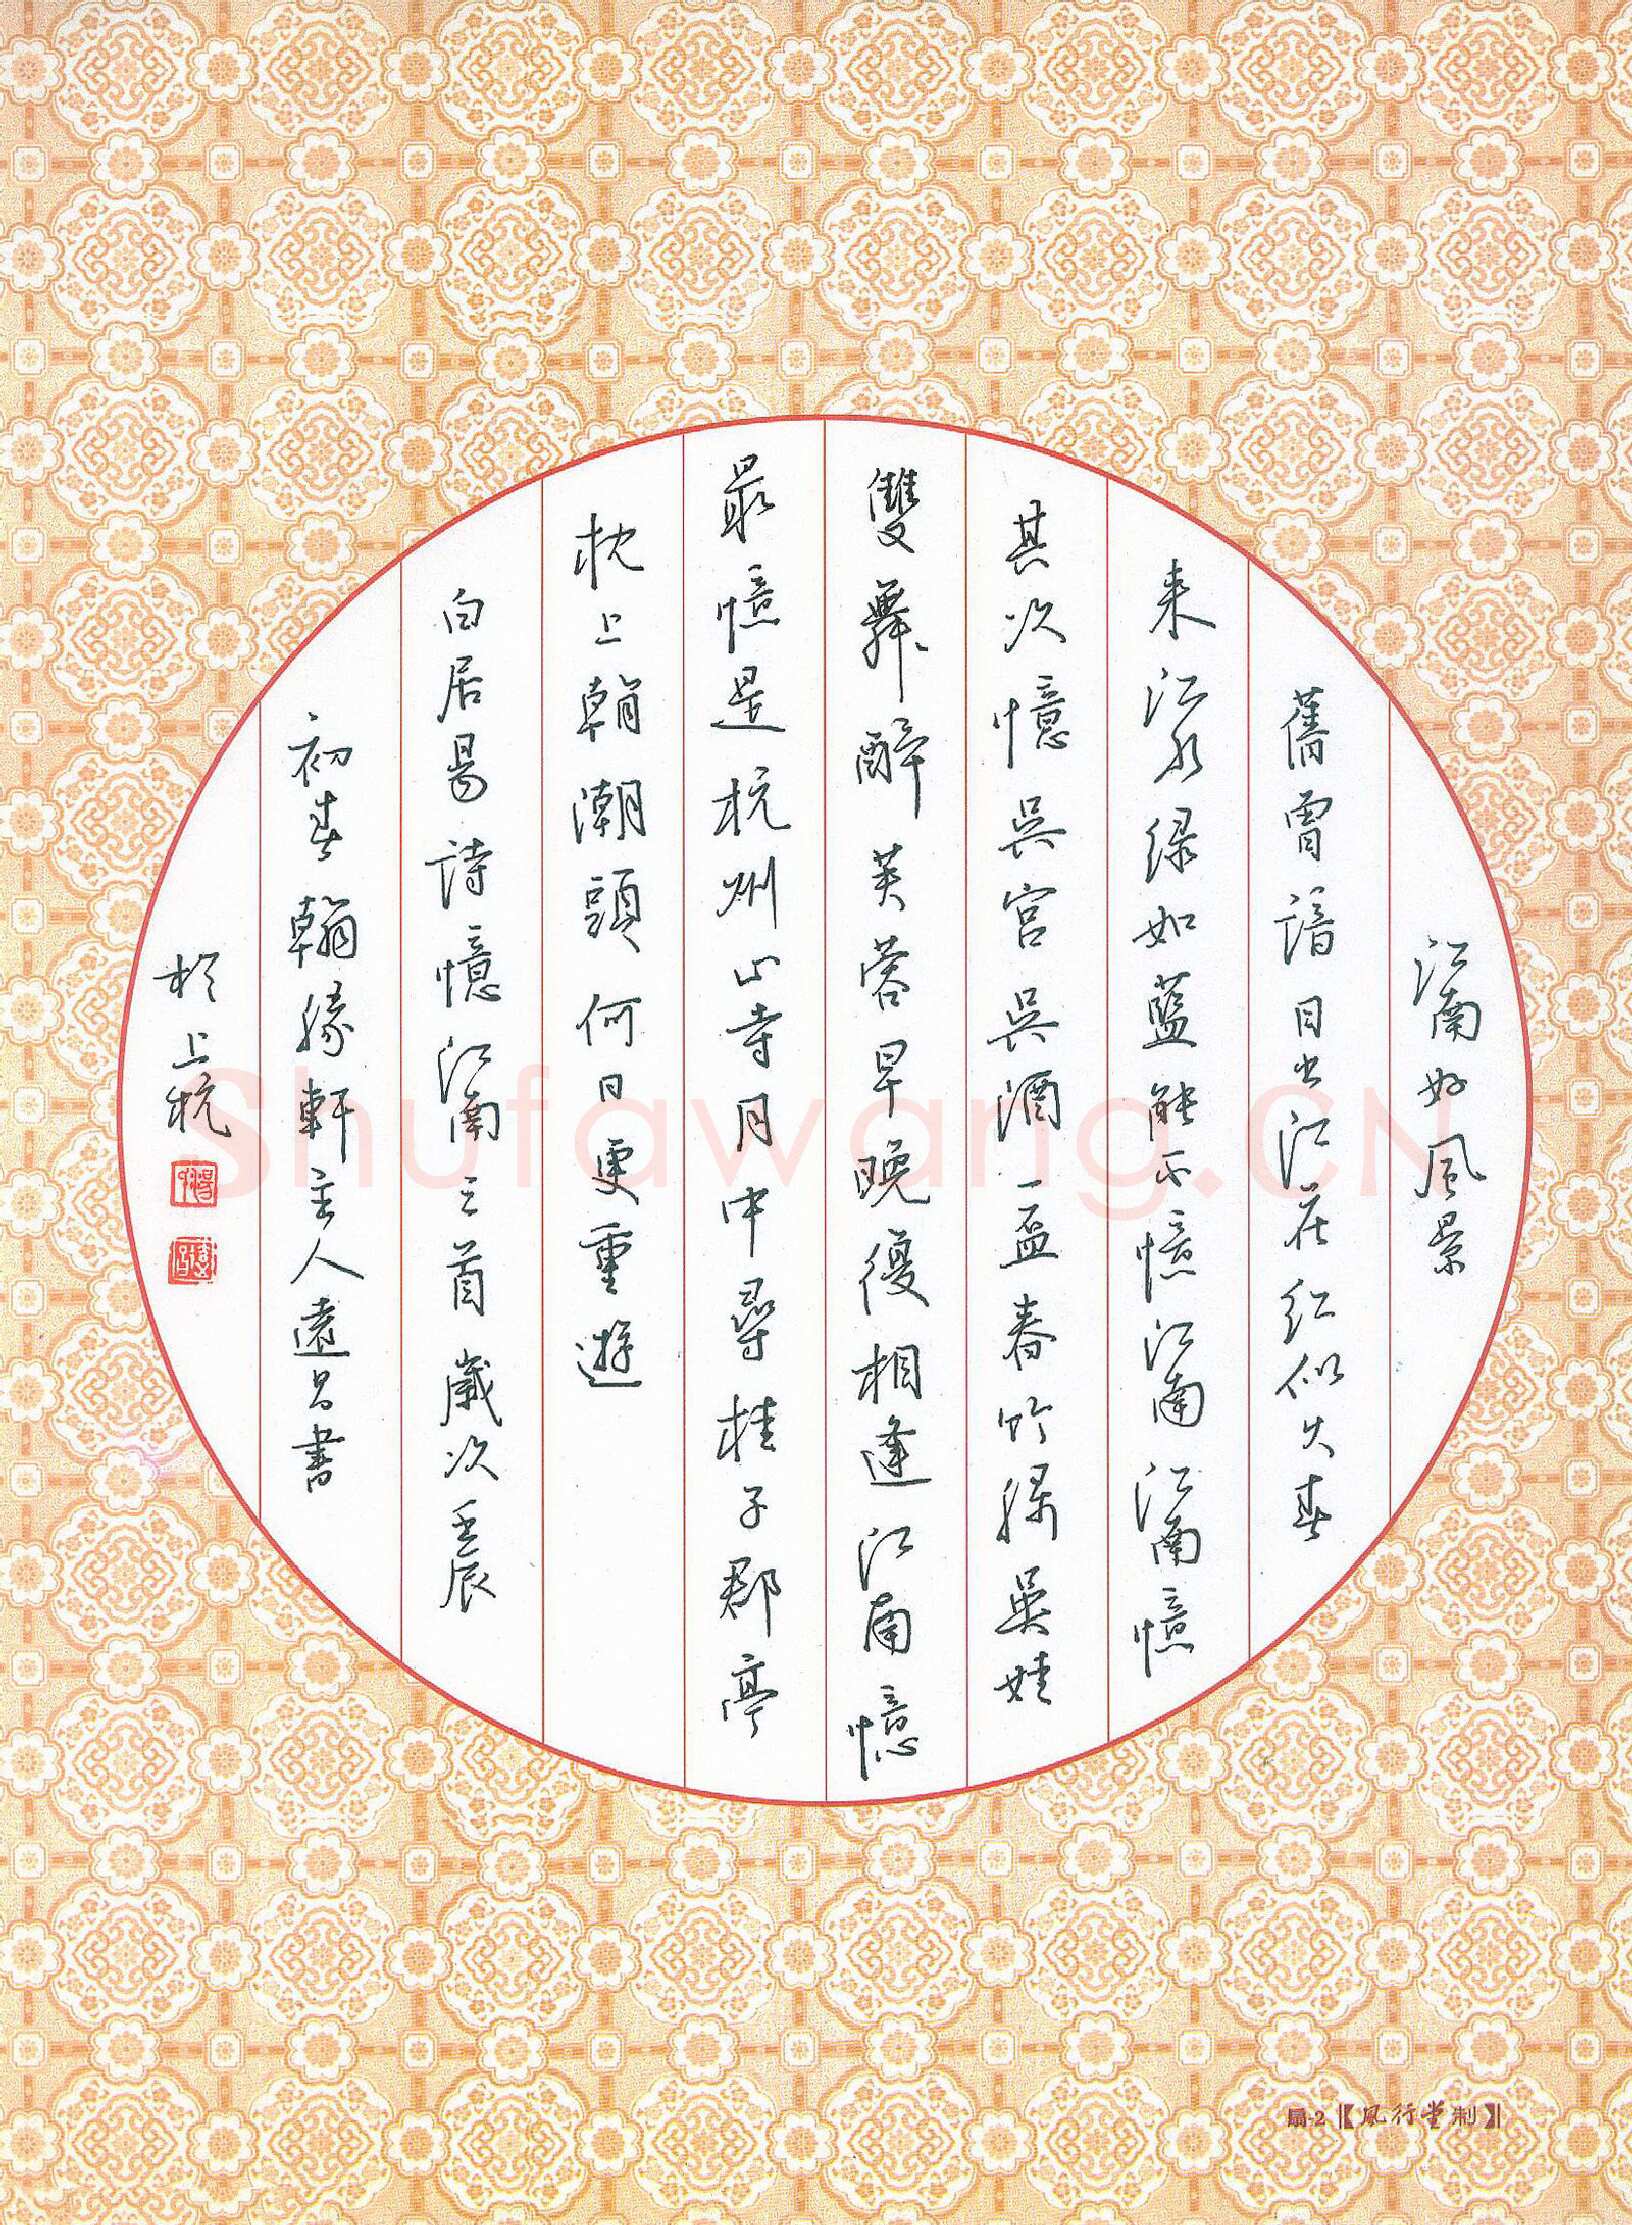 江南好風景
舊曾諳日出江花红似火春
来江水绿如藍能不憶江南江南憶
其次憶吳宫吳酒一盃春竹吳娃
雙舞醉芙蓉早晚復相逢江南憶
最憶是杭州山寺月中尋桂子郡亭
枕上朝潮頭何日更重遊
白居易詩憶江南三首歲次壬辰
初春翰緣軒主人遠昌書
於上杭
Shufawang.CN
扇-2【風行堂制】